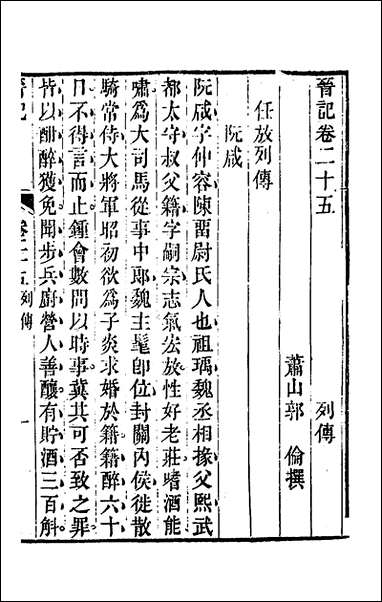 晉記卷二十五
列傳
蕭山郭　倫撰
任放列傳
阮咸
阮咸字仲容陳畱尉氏人也祖瑀魏丞相掾父熙武
都太守叔父籍字嗣宗志氣宏放性好老莊嗜酒能
嘯爲大司馬從事中郎魏主髦卽位封關內侯徙散
騎常侍大將軍昭初欲爲子炎求婚於籍籍醉六十
日不得言而止鍾會數問以時事冀其可否致之罪
皆以酣醉獲免聞步兵廚營人善釀有貯酒三百斛
晉記
卷二十五列傳
一